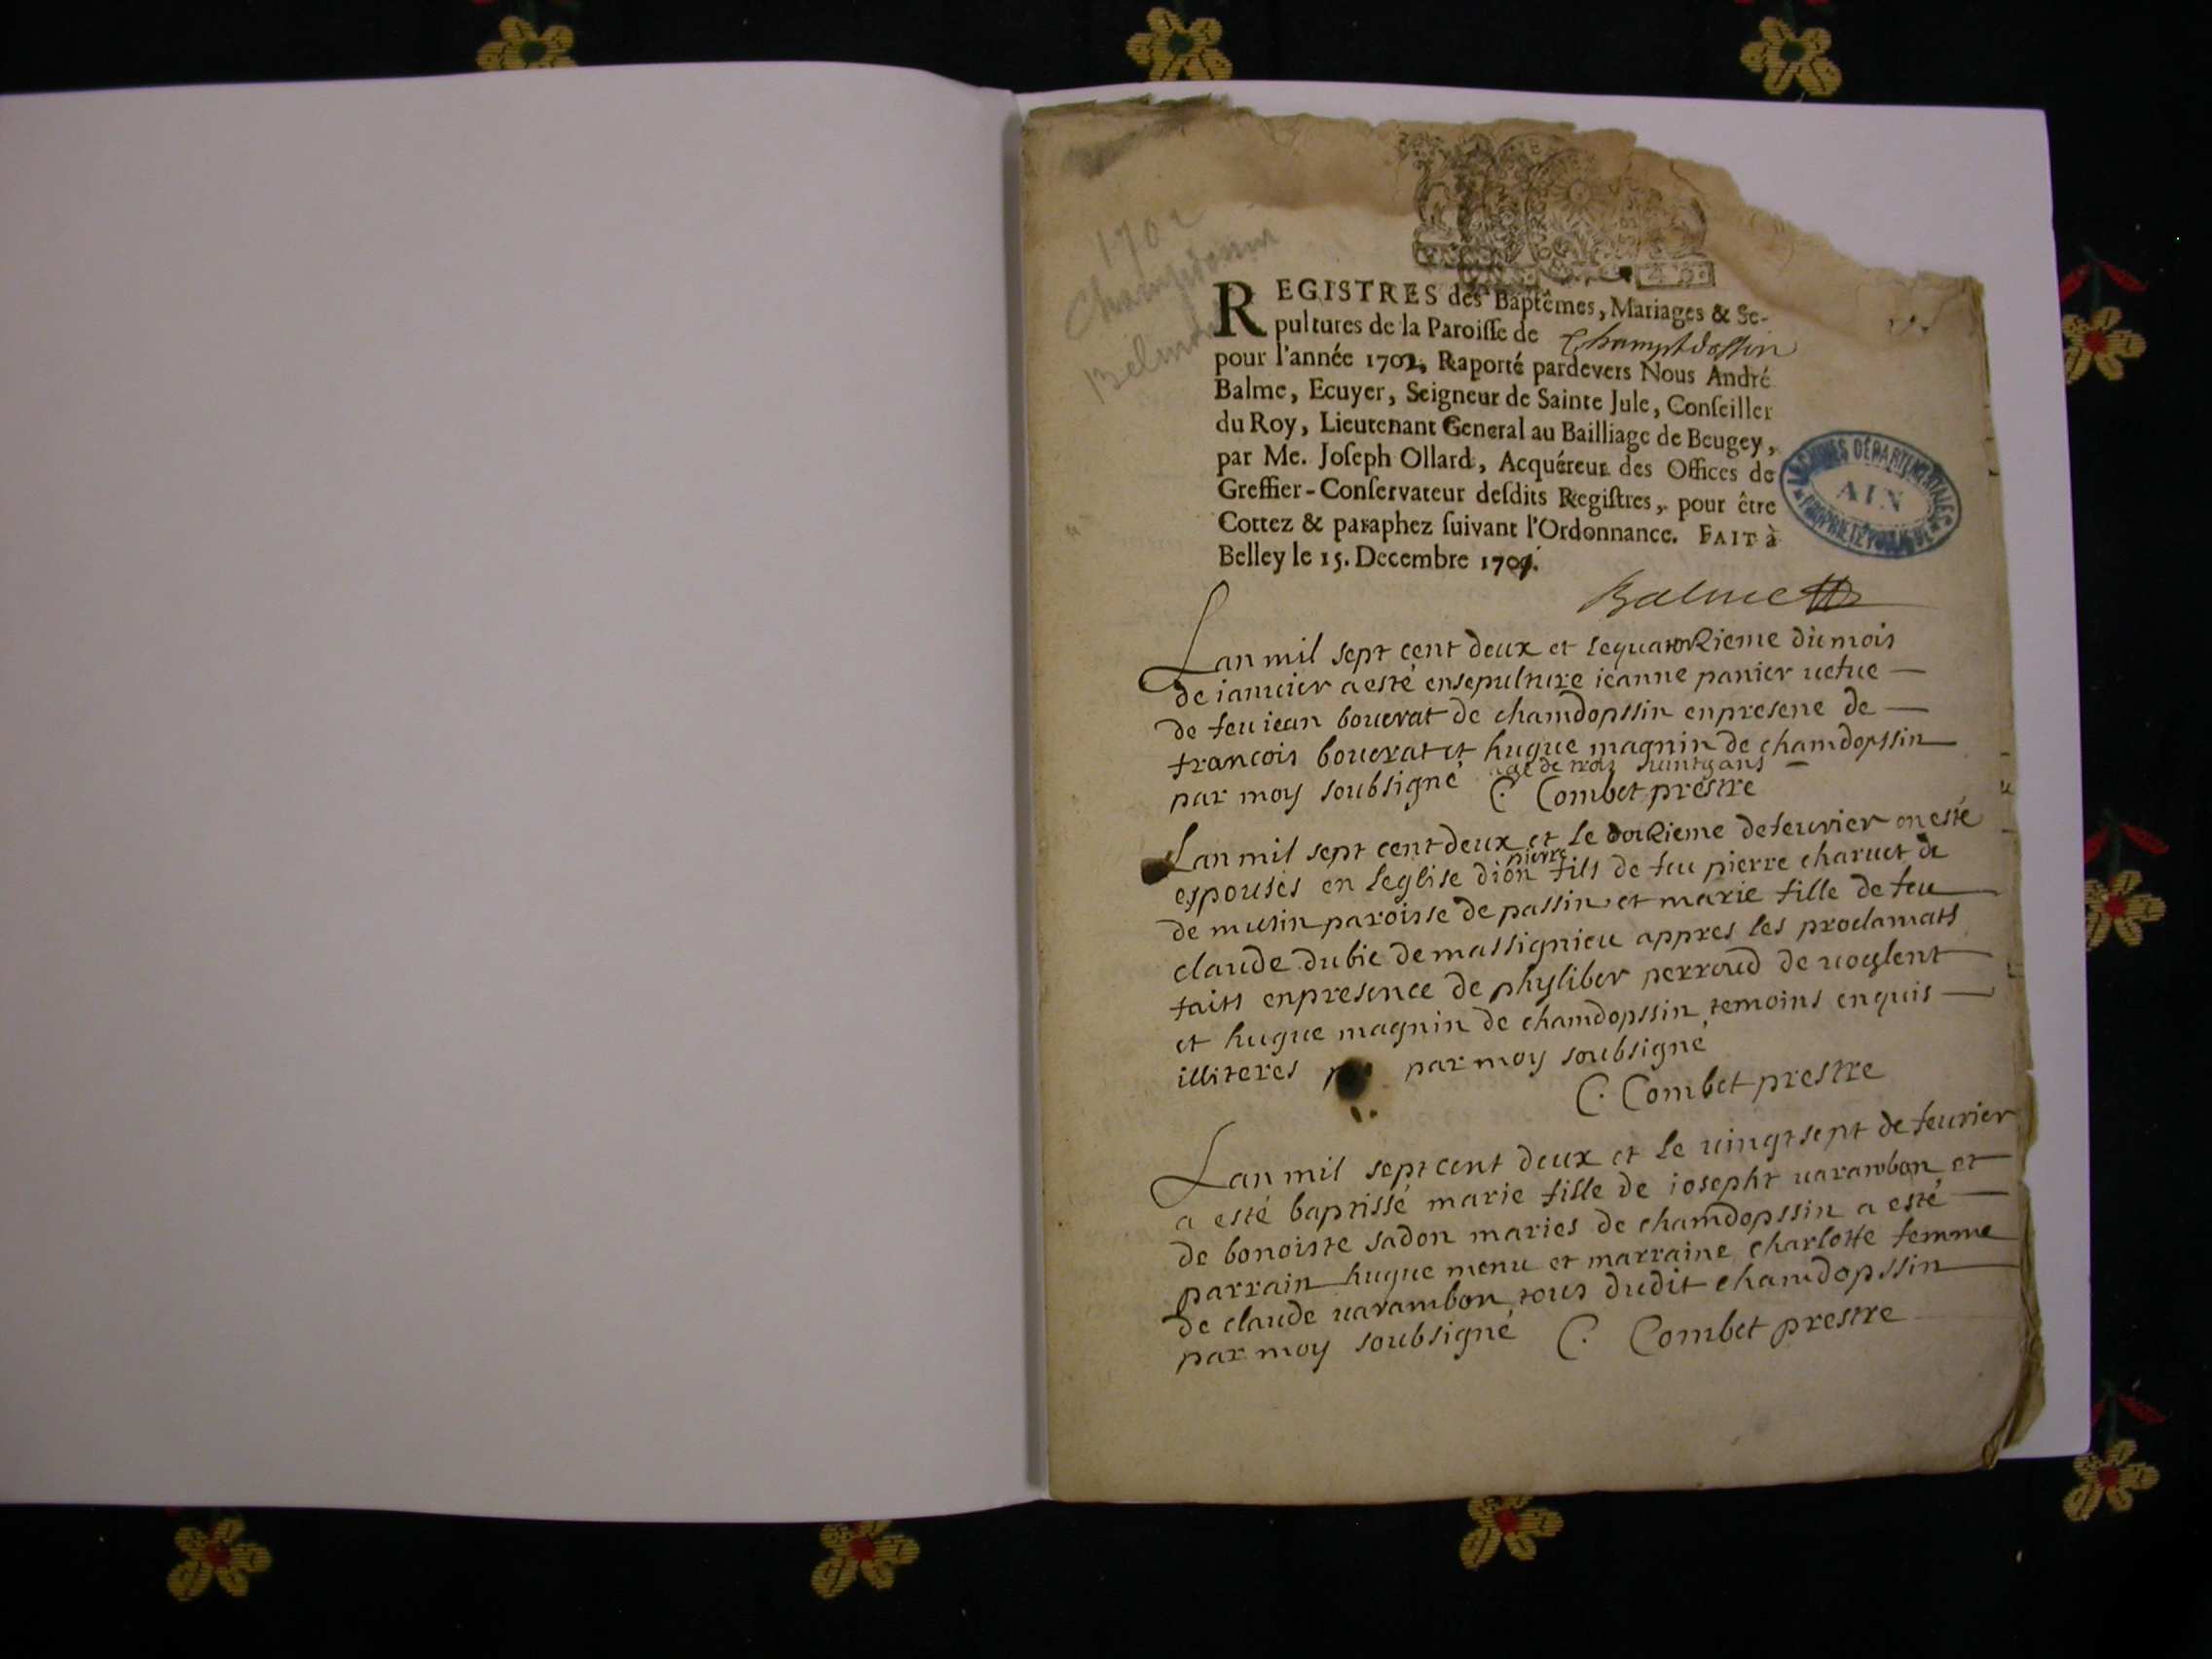 1702
Champdossin
Belmont
REGISTRES des Baptêmes, Mariages & Se-
pultures de la Paroisse de Champtdossin
pour l'année 1702, Raporté pardevers Nous André
Balme, Ecuyer, Seigneur de Sainte Jule, Conseiller
du Roy, Lieutenant General au Bailliage de Beugey,
par Me. Joseph Ollard, Acquéreur des Offices de
Greffier-Conservateur desdits Registres, pour être
Cottez & paraphez suivant l'Ordonnance. FAIT à
Belley le 15. Decembre 1701.
ARCHIVES DÉPARTEMENTALES
AIN
PROPRIÉTÉ PUBLIQUE
Balme
Lan mil sept cent deux et le quatorzieme du mois
de ianuier a esté ensepulture ieanne panier uefue
de feu iean bouerat de chamdopssin en presene de
francois bouerat et hugue magnin de chamdopssin
agé de trois vintz ans
par moy soubsigné C. Combet prestre
Lan mil sept cent deux et le douzieme de feurier on esté
espousés en leglise dion pierre fils de feu pierre charuet de
de musin paroisse de passin et marie fille de feu
claude dubie de massignieu appres les proclamats
faits en presence de phyliber perroud de uoglent
et hugue magnin de chamdopssin temoins enquis
illiteres par moy soubsigné
C. Combet prestre
Lan mil sept cent deux et le uingt sept de feurier
a esté baptissé marie fille de iosepht uarambon et
de bonoiste sadon maries de chamdopssin a esté
parrain hugue menu et marraine charlotte femme
de claude uarambon tous dudit chamdopssin
par moy soubsigné C. Combet prestre